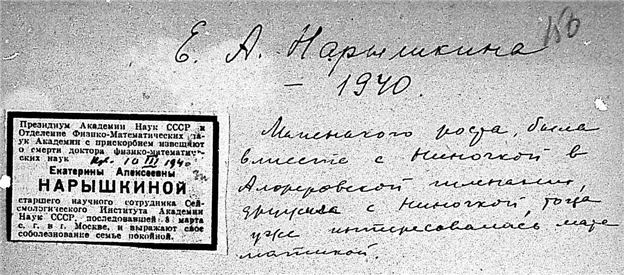 150
Е. А. Нарышкина
– 1940.
Президиум Академии Наук СССР и
Отделение Физико-Математических На-
ук Академии с прискорбием извещают
о смерти доктора физико-математиче-
ских наук
10 III 1940
Екатерины Алексеевны
НАРЫШКИНОЙ
старшего научного сотрудника Сей-
смологического Института Академии
Наук СССР, последовавшей 8 марта
с. г. в г. Москве, и выражают свое
соболезнование семье покойной.
Маленького роста, была
вместе с Ниночкой в
Алферовской гимназии,
дружила с Ниночкой, тогда
уже интересовалась мате
матикой.